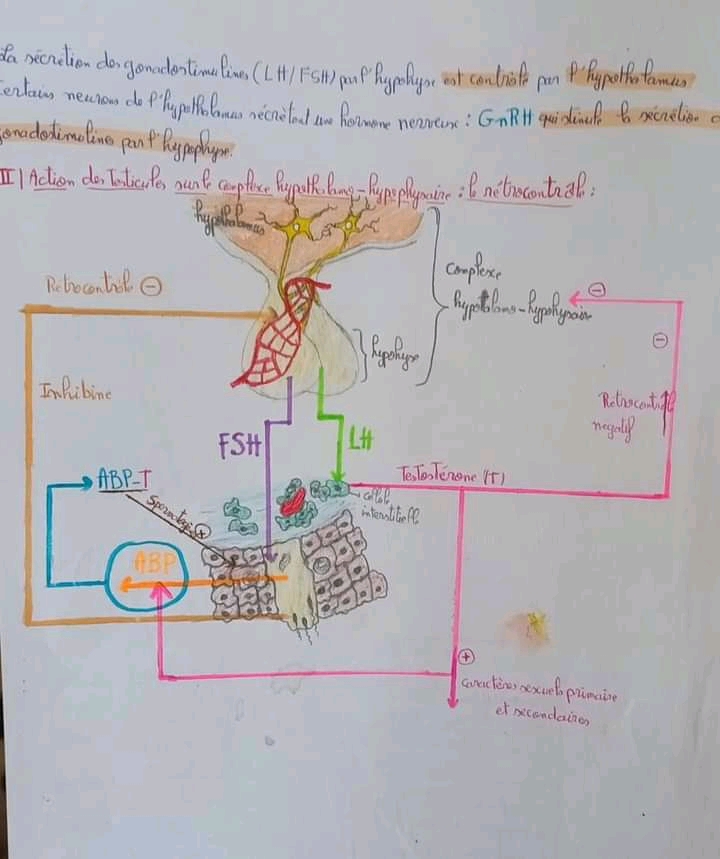 La sécrétion des gonadostimulines (LH/FSH) par l'hypohyse est contrôlé par l'hypothalamus
Certains neurones de l'hypothalamus sécrètent une hormone nerveuse : GnRH qui stimule la sécrétion
gonadostimuline par l'hypophyse.
II | Action des Testicules sur le complexe hypothalamo-hypophysaire : le rétrocontrôle :
hypothalamus
complexe
hypothalamo-hypohysaire
Rétrocontrôle ⊖
⊖
⊖
hypohyse
Inhibine
Rétrocontrôle
négatif
FSH
LH
ABP-T
Testostérone (T)
cellule
interstitielle
⊕
ABP
⊕
caractères sexuels primaire
et secondaires